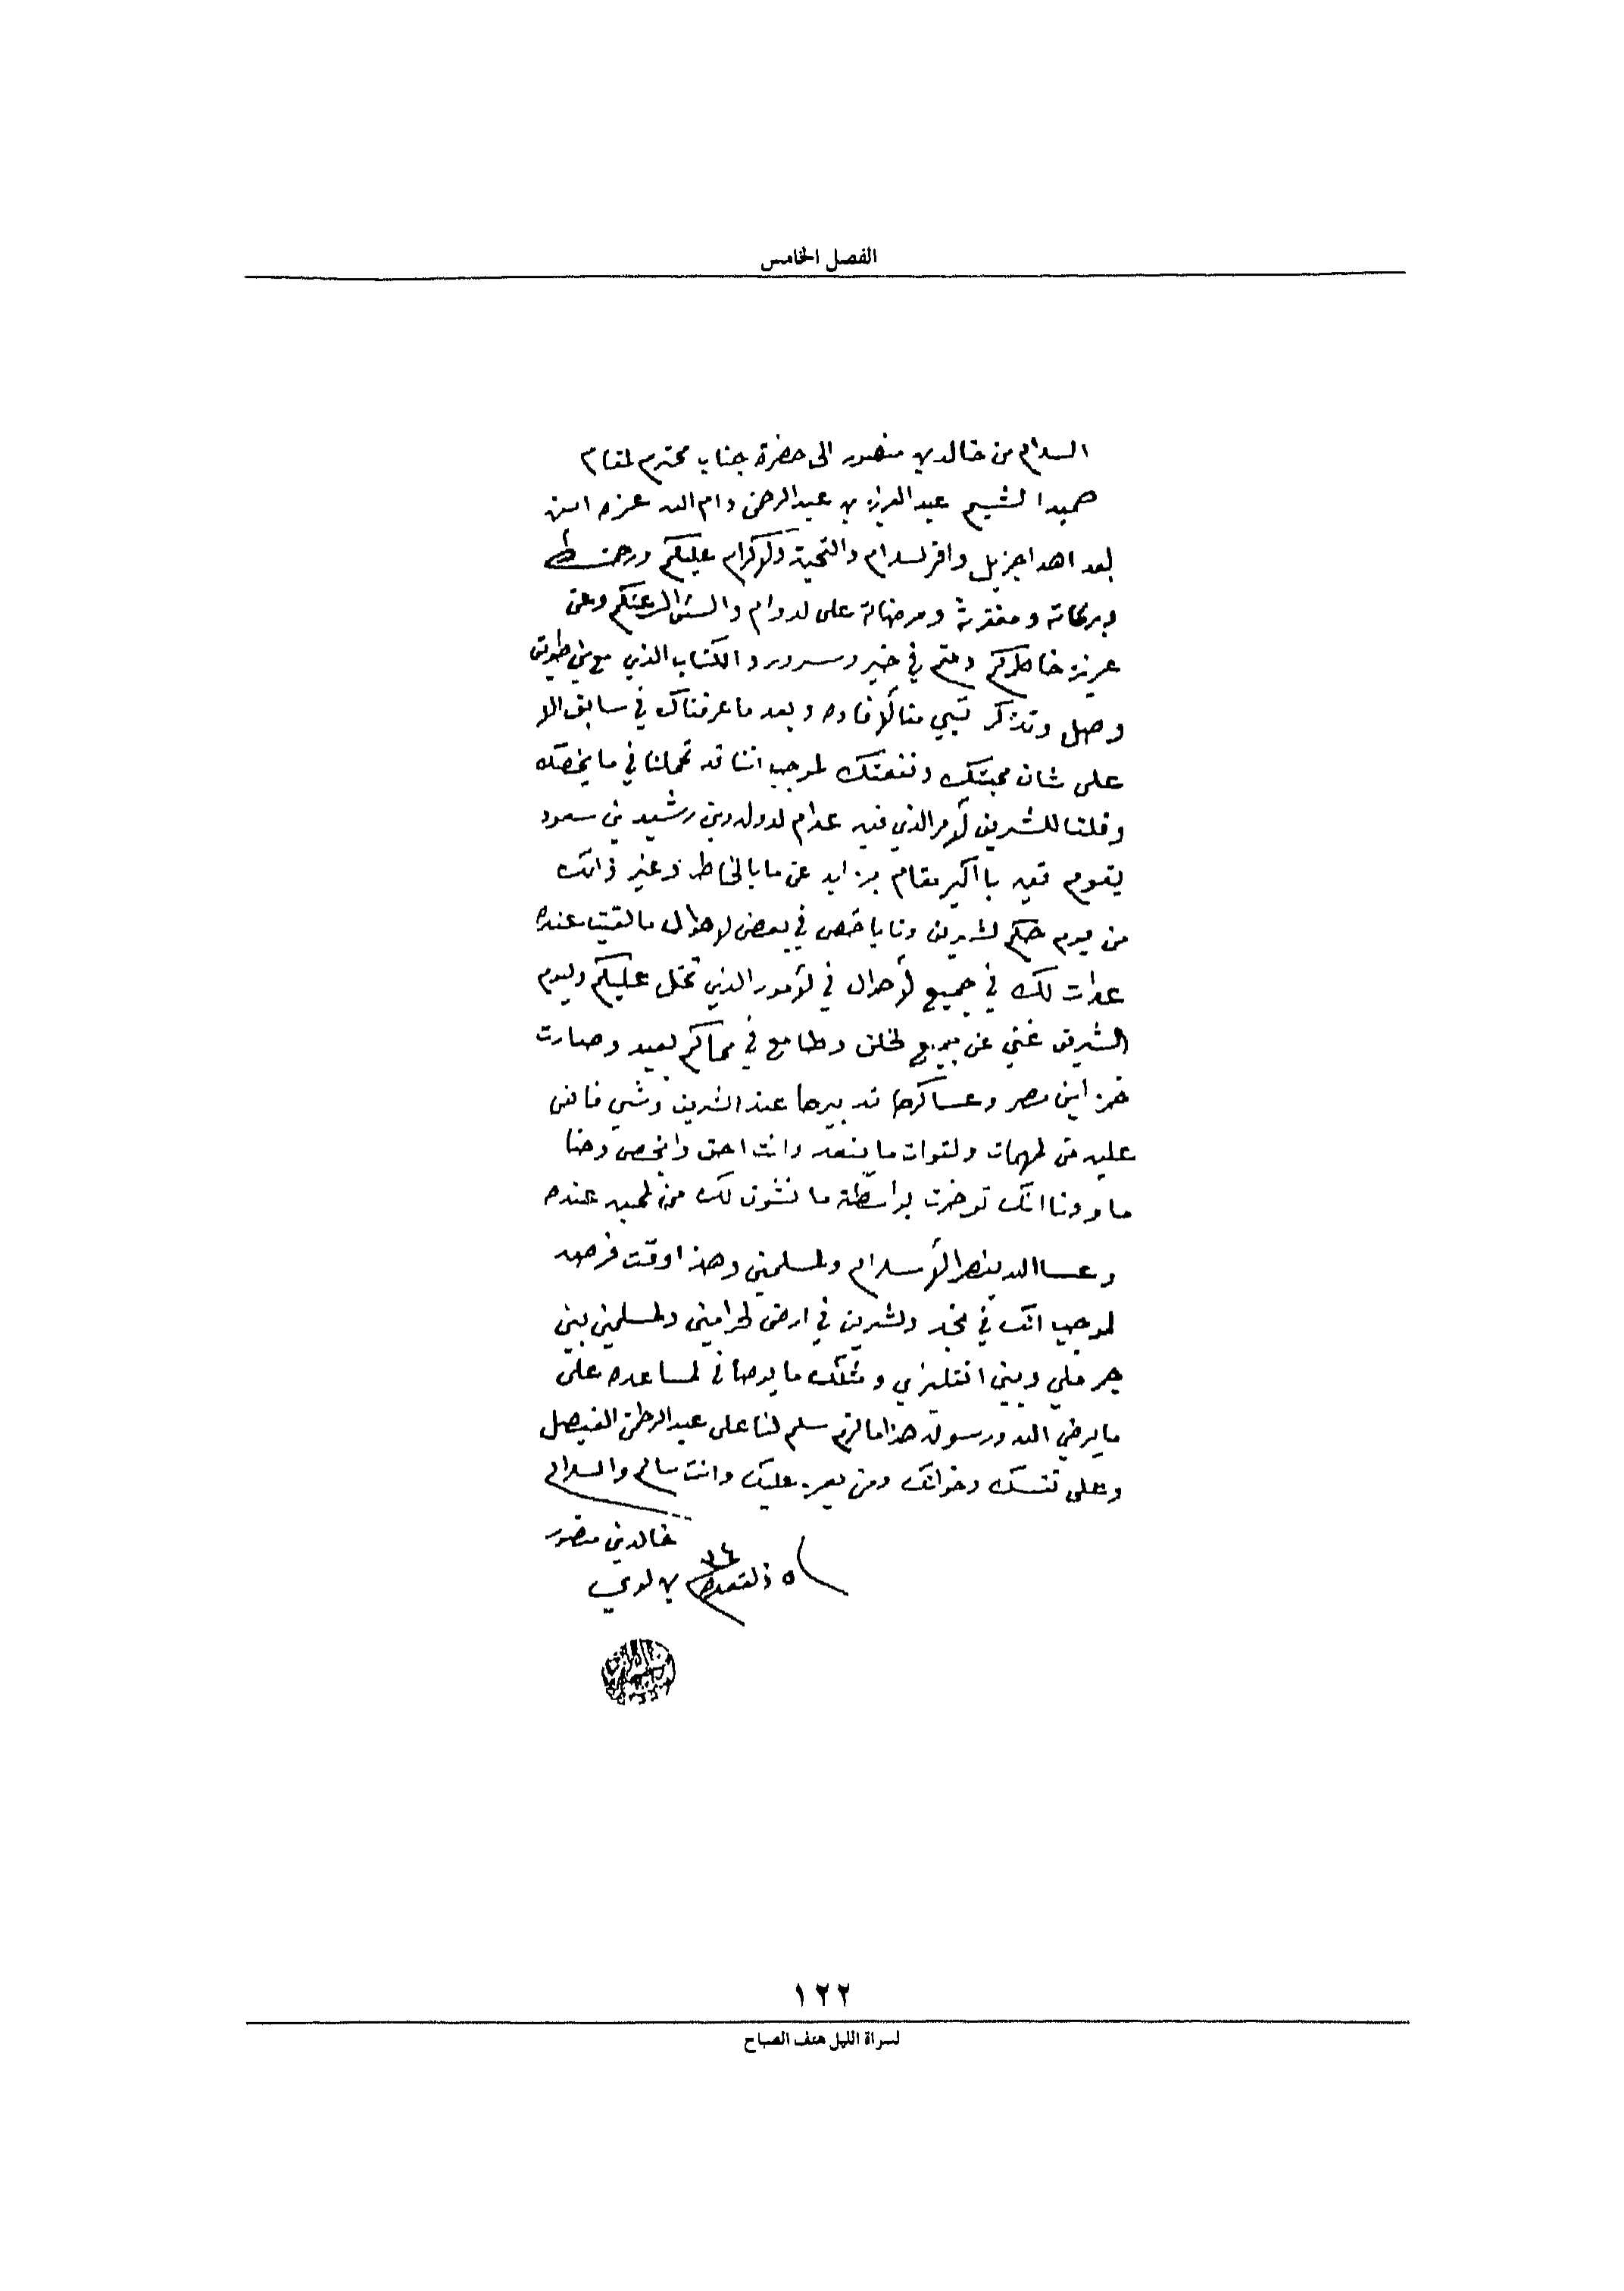 الفصل الخامس
السلام من خالد بن منصور الى حضرة جناب محترم لمقام
حميد الشيم عبد العزيز بن عبد الرحمن دام الله عزه امين
بعد اهدا جزيل وافر لسلام والتحية ولاكرام عليكم ورحمة
وبركاته ومغفرته ومرضاته على لدوام والسئال عنكم وعن
عزيز خاطركم دمتم في خير وسرور والكتاب الذي مع بن طويق
وصل وتذكر تبي منا لافاده وبعد ما عرفناك في سابق
على شان محبتك ونفعتك لموجب اننا قد تحملنا في ما يخصك
وقلنا للشريف لأمر الذي فيه عدام لدوله وبن رشيد بن سعود
يقوم فيه با اكبر مقام يزايد عن ما بالخاطر وغير ذالك
من يوم حكم لشريف ونا باخص في بعض لاحوال مالقيت عنده
عدات لك في جميع لأحوال في لأمور الذي تخل عليكم وليوم
الشريف غني عن جميع لخلق وطامع في محاكم بعيد وصارت
خزاين مصر وعساكرها تدبيرها عند الشريف وشي فائض
عليه من لمهمات ولقوات ما ينعد وانت احق وانخص وحنا
ما ودنا انك توخرت بواسطة ما نشوف لك من لمحبه عنده
وعسا الله ينصر الأسلام ولمسلمين وهذا وقت فرصه
لموجب انك في نجد ولشريف في ارض لحرامين ولمسلمين بين
جرملي وبين انقليزي ومثلك ما يوصا في لمساعده على
ما يرضي الله ورسوله هذا مالزم سلم لنا على عبد الرحمن الفيصل
وعلى نفسك وخوانك ومن يعز عليك وانت سالم والسلام
خالد بن منصور
٥ ذلقعده ٣٤ بن لوي
١٢٢
لسراة الليل هتف الصباح